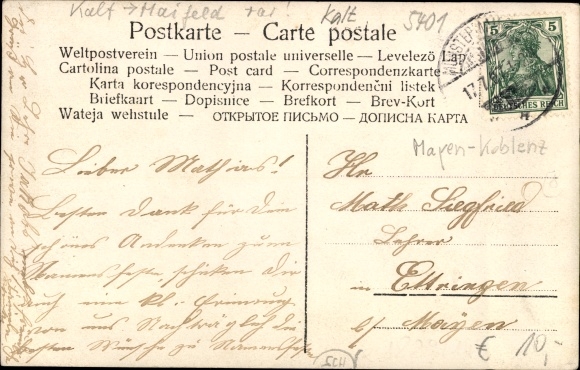 Kalt → Maifeld rar! Kalt 5401
Postkarte — Carte postale
Weltpostverein — Union postale universelle — Levelező Lap
Cartolina postale — Post card — Correspondenzkarte
Karta korespondencyjna — Korrespondenčni listek
Briefkaart — Dopisnice — Brefkort — Brev-Kort
Wateja wehstule — ОТКРЫТОЕ ПИСЬМО — ДОПИСНА КАРТА
5 5
DEUTSCHES REICH
Mayen-Koblenz
Lieber Mathias!
Besten Dank für Dein
schönes Andenken zum
Namensfeste, schicken Dir
auch eine kl. Erinnerung
von uns Nachträglich die
besten Wünsche zu Namensfeste
Hr.
Math. Siegfried
Lehrer
Ettringen
b/ Mayen
€ 10,-